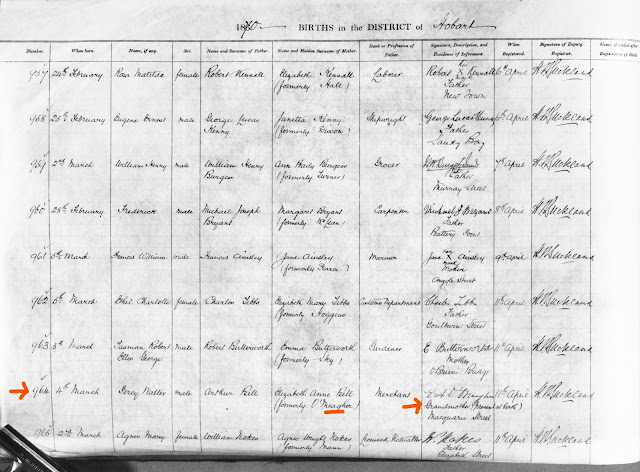 1870 BIRTHS in the DISTRICT of Hobart
Number. When born. Name, if any. Sex. Name and Surname of Father. Name and Maiden Surname of Mother. Rank or Profession of Father. Signature, Description, and Residence of Informant. When Registered. Signature of Deputy Registrar. Name, if added after Registration of Birth.
957 24th February Rosa Matilda female Robert Kennall Elizabeth Kennall (formerly Hall) Laborer Robert Kennall 6th April
Father
New Town
958 25th February Eugene Ernest male George Lucas Kenny Janetta Kenny (formerly) Shipwright George Lucas Kenny 6th April
Father
Sandy Bay
959 2nd March William Henry male William Henry Burgess Ann Burgess (formerly Turner) Grocer 7th April
Father
Murray Street
960 28th February Frederick male Michael Joseph Bryant Margaret Bryant (formerly) Carpenter 8th April
Father
Battery Point
961 5th March Francis William male Francis Ainsley Jane Ainsley (formerly) Mariner Jane X Ainsley 9th April
Mother
Argyle Street
962 5th March Ethel Charlotte female Charles Tibbs Elizabeth Mary Tibbs (formerly Huggins) Customs Department Charles Tibbs 11th April
Father
Goulburn Street
963 5th March Robert Ellis George male Robert Butterworth Emma Butterworth (formerly Sky) Gardener E Butterworth 11th April
Mother
O'Briens Bridge
964 4th March Percy Walter male Arthur Bell Elizabeth Anne Bell (formerly O'Meagher) Merchant 11th April
Grandmother (Present at birth)
Macquarie Street
965 2nd March Agnes Mary female William Nokes Agnes Nokes (formerly Mann) Licensed Victualler W. Nokes 11th April
Father
Elizabeth Street